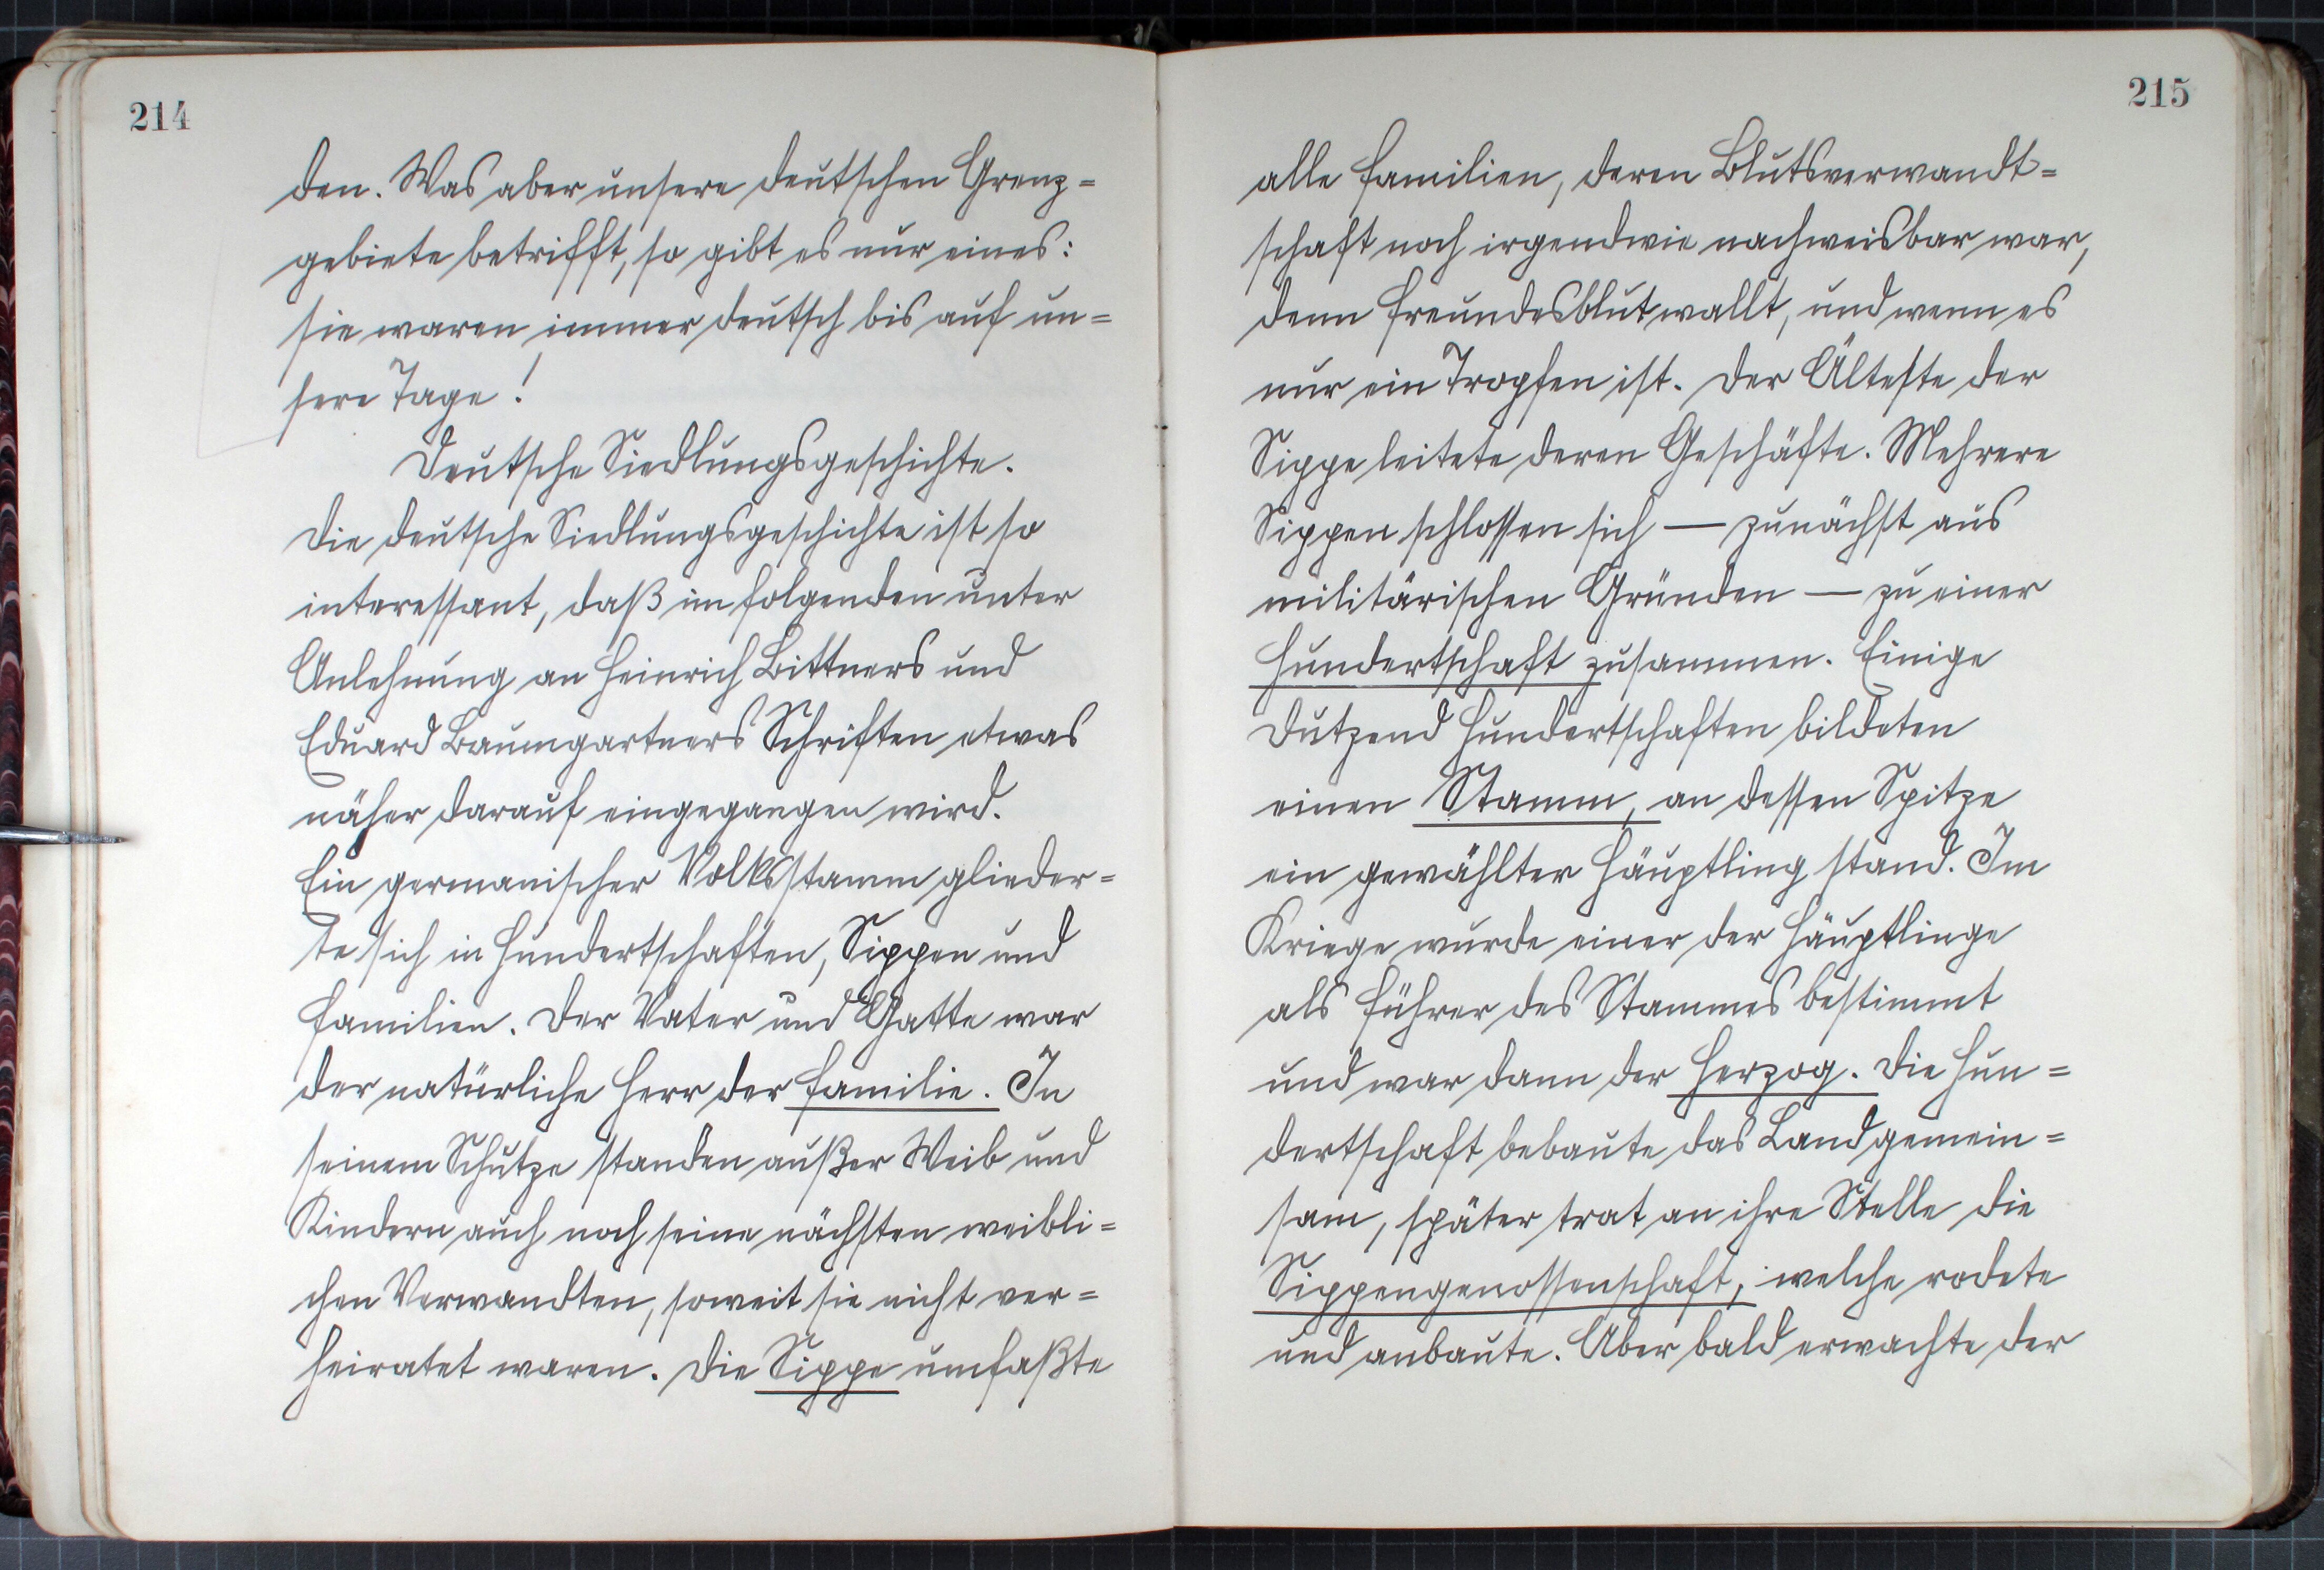 214
den. Was aber unsere deutschen Grenz=
gebiete betrifft, so gibt es nur eines:
sie waren immer deutsch bis auf un=
sere Tage!
Deutsche Siedlungsgeschichte.
Die deutsche Siedlungsgeschichte ist so
interessant, daß im folgenden unter
Anlehnung an Heinrich Bittners und
Eduard Baumgartners Schriften etwas
näher darauf eingegangen wird.
Ein germanischer Volksstamm glieder=
te sich in Hundertschaften, Sippen und
Familien. Der Vater und Gatte war
der natürliche Herr der Familie. In
seinem Schutze standen außer Weib und
Kindern auch noch seine nächsten weibli=
chen Verwandten, soweit sie nicht ver=
heiratet waren. Die Sippe umfaßte
215
alle Familien, deren Blutsverwandt=
schaft noch irgendwie nachweisbar war,
denn Freundesblut wallt, und wenn es
nur ein Tropfen ist. Der Älteste der
Sippe leitete deren Geschäfte. Mehrere
Sippen schlossen sich — zunächst aus
militärischen Gründen — zu einer
Hundertschaft zusammen. Einige
Dutzend Hundertschaften bildeten
einen Stamm, an dessen Spitze
ein gewählter Häuptling stand. Im
Kriege wurde einer der Häuptlinge
als Führer des Stammes bestimmt
und war dann der Herzog. Die Hun=
dertschaft bebaute das Land gemein=
sam, später trat an ihre Stelle die
Sippengenossenschaft, welche rodete
und anbaute. Aber bald erwachte der